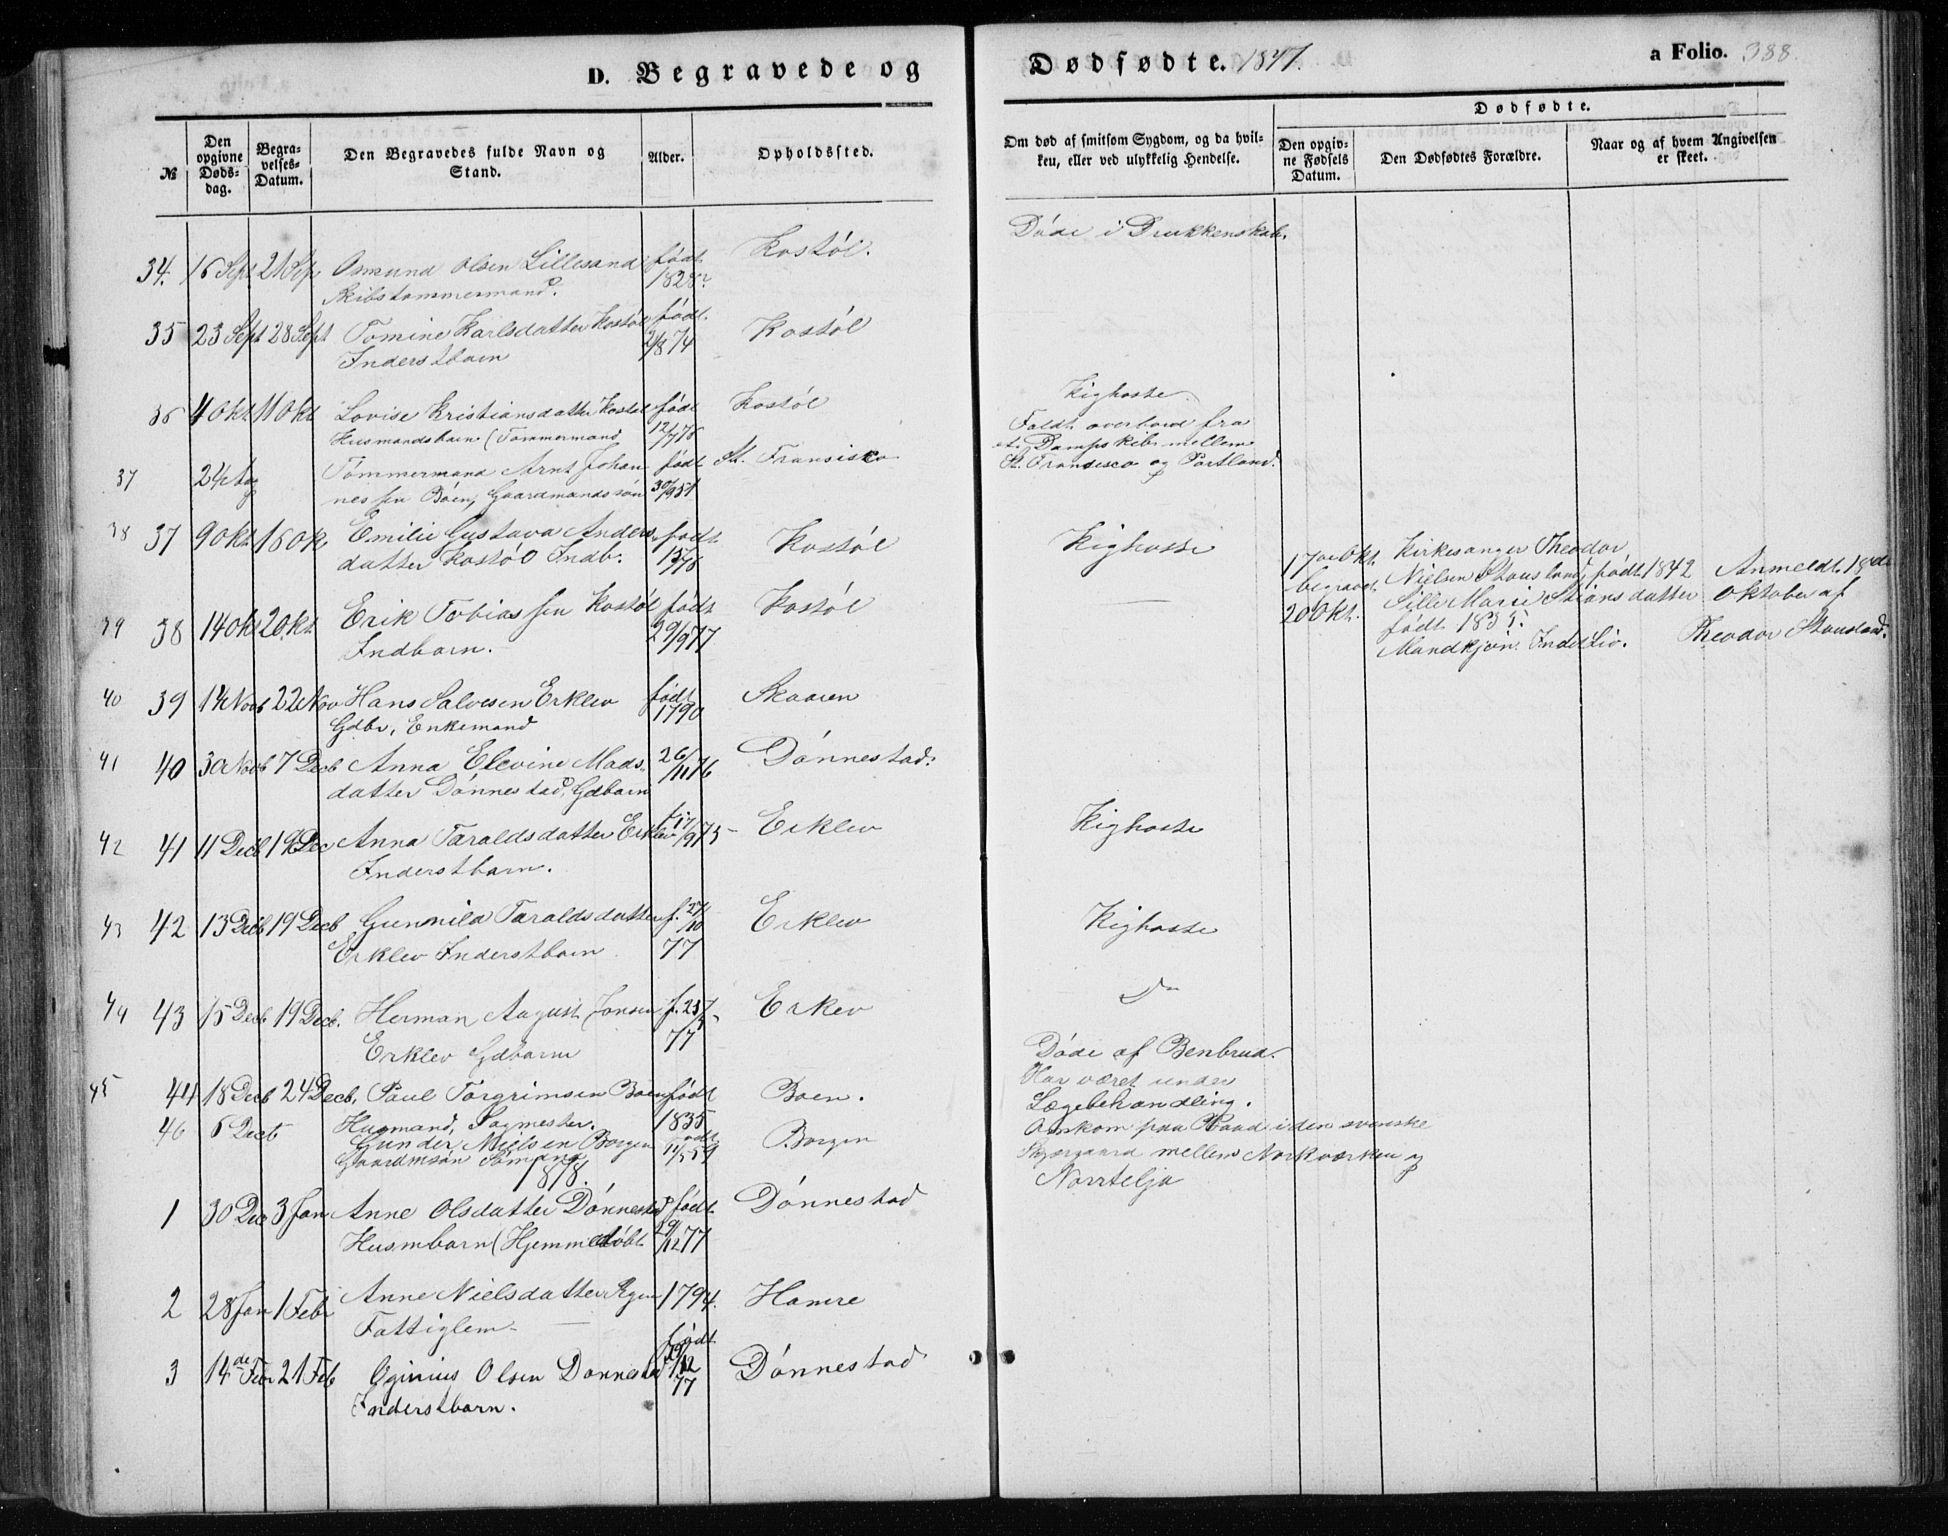 D. Begravede og Dødfødte. 1877. a Folio. 388.
№
Den opgivne Døds-dag.
Begra-velses-Datum.
Den Begravedes fulde Navn og Stand.
Alder.
Opholdssted.
Om død af smitsom Sygdom, og da hvil-ken, eller ved ulykkelig Hendelse.
Dødfødte.
Den opgiv-ne Fødsels Datum.
Den Dødfødtes Forældre.
Naar og af hvem Angivelsen er skeet.
34. 16 Sept 21 Sep Osmund Olsen Lillesand født Kostøl. Døde i Drukkenskab.
Skibstømmermand. 1828
35 23 Sept 28 Sept Tomine Karlsdatter Kostøl født. Kostøl
Inderstbarn 2/8 74
36 4 Okt 11 Okt Lovise Kristiansdatter Kostøl født Kostøl Kighoste
Husmandsbarn (Tømmermand 12/7 76
37 24 Aug Tømmermand Arnt Johan født St. Fransisco Faldt overbord fra
nessen Boen, Gaardmandssøn 30/9 51 et Dampskib mellem
St. Francisco og Portland.
38 37 9 Okt. 16 Ok Emilie Gustava Anders født Kostøl Kighoste
datter Kostøl Indb. 15/ 76
17de Okt. Kirkesanger Theodor
begravet Nielsen Stousland, født 1842 Anmeldt 18de
20 Okt. Sille Marie Stiansdatter Oktober af
født 1835. Theodor Stousland.
Mandkjøn. Indst Liv.
39 38 14 Okt 20 kt Erik Tobiassen Kostøl født Kostøl
Indbarn. 29/9 77
40 39 14 Novb 22 Nov Hans Salvesen Erklev født Skaaren
Gdbr, Enkemand 1790
41 40 30 Novb 7 Decb Anna Elevine Mads- 26/11 76 Dønnestad.
datter Dønnestad, Gdbarn
42 41 11 Decb 19 Dec Anna Taraldsdatter Erklev f 17/9 73 Erklev Kighoste
Inderstbarn.
43 42 13 Decb 19 Decb Gunnild Taraldsdatter f. 27/10 Erklev Kighoste
Erklev Inderstbarn 77
44 43 15 Decb. 19 Decb. Herman August Jonsen f. 25/ Erkev Do
Erklev Gdbarn 77
45 44 18 Decb 24 Decb. Paul Torgrimsen Boen født Boen. Døde af Benbrud.
Husmand, Sagmester. 1835 Har været under
Lægebehandling.
46 6 Decb Gunder Nielsen Borgen født Borgen Omkom paa Haad i den svenske
Gaardmsøn Sømand 59 Skjærgaard mellem Norkværken og
Norrtelja
1878.
1 30 Dec 3 Jan Anne Olsdatter Dønnestad født. Dønnestad
Husmbarn (Hjemmedøbt 29/12 77
2 28 Jan 1 Febr Anne Nielsdatter 1794. Hamre
Fattiglem
3 14de Febr 21 Feb Oginius Olsen Dønnestad født 29/12 77 Dønnestad
Inderstbarn.